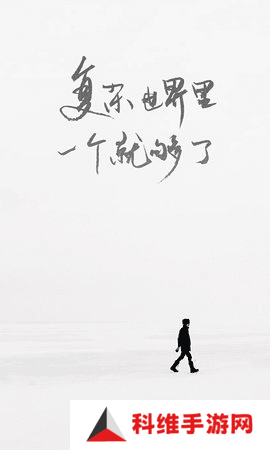 复杂世界里
一个就够了
科维手游网